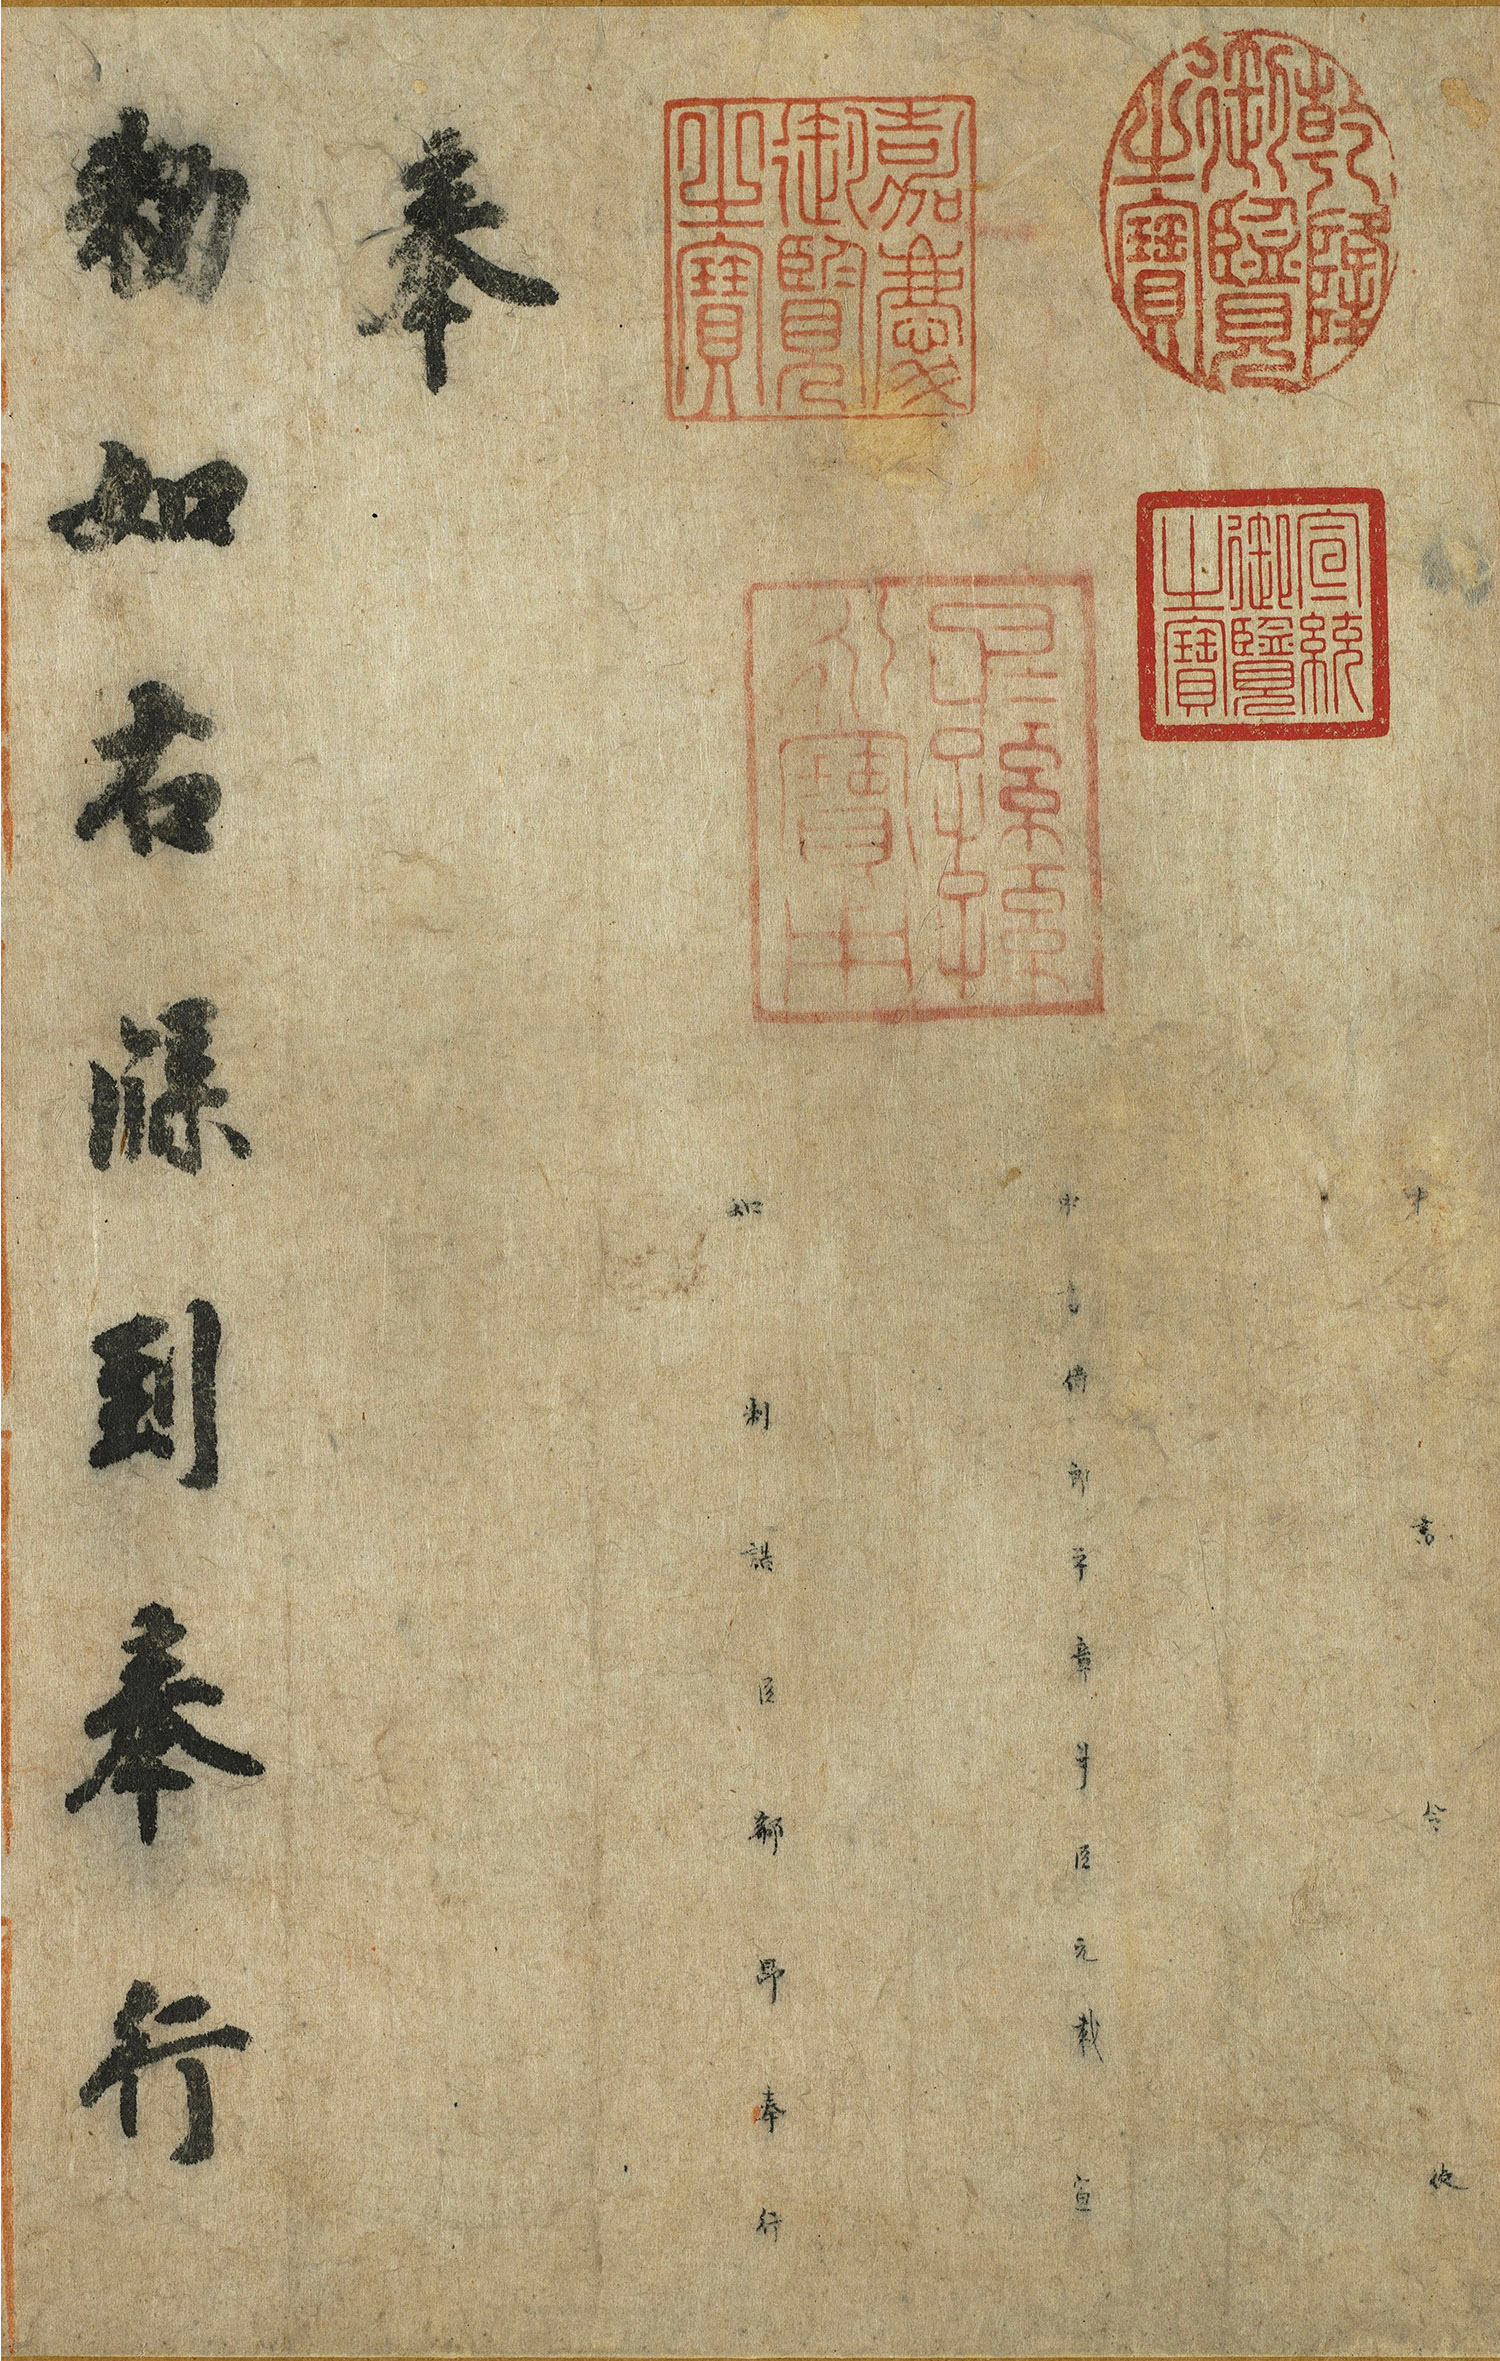 乾隆御覽之寶
宣統御覽之寶
嘉慶御覽之寶
中書令使
中書侍郎平章事臣元載宣
知制誥臣郗昂奉行
奉
勑如右牒到奉行